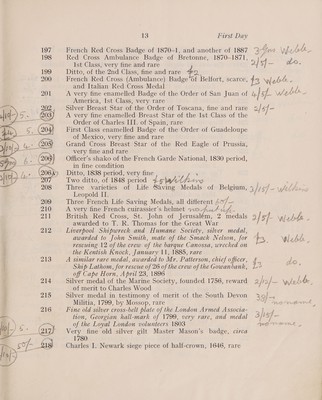 13 First Day
197 French Red Cross Badge of 1870-1, and another of 1887
198 Red Cross Ambulance Badge of Bretonne, 1870-1871,
1st Class, very fine and rare
199 Ditto, of the 2nd Class, fine and rare
200 French Red Cross (Ambulance) Badge of Belfort, scarce,
and Italian Red Cross Medal
201 A very fine enamelled Badge of the Order of San Juan of
America, 1st Class, very rare
202 Silver Breast Star of the Order of Tuscany, fine and rare 2/5/-
203 A very fine enamelled Breast Star of the 1st Class of the
Order of Charles III. of Spain, rare
204 First Class enamelled Badge of the Order of Guadeloupe
of Mexico, very fine and rare
205 Grand Cross Breast Star of the Red Eagle of Prussia,
very fine and rare
206 Officer's shako of the French Garde National, 1830 period,
in fine condition
206A Ditto, 1838 period, very fine
207 Two ditto, of 1848 period
208 Three varieties of Life Saving Medals of Belgium,
Leopold II.
209 Three French Life Saving Medals, all different
210 A very fine French cuirassier's helmet
211 British Red Cross, St. John of Jerusalem, 2 medals
awarded to T. R. Thomas for the Great War
212 Liverpool Shipwreck and Humane Society, silver medal,
awarded to John Smith, mate of the Smack Nelson, for
rescuing 12 of the crew of the barque Canossa, wrecked on
the Kentish Knock, January 11, 1885, rare
213 A similar rare medal, awarded to Mr. Patterson, chief officer,
Ship Lathom, for rescue of 28 of the crew of the Gowanbank,
off Cape Horn, April 23, 1896
214 Silver medal of the Marine Society, founded 1756, reward
of merit to Charles Wood
215 Silver medal in testimony of merit of the South Devon
Militia, 1799, by Mossop, rare
216 Fine old silver cross-belt plate of the London Armed Associa-
tion, Georgian hall-mark of 1799, very rare, and medal
of the Loyal London volunteers 1803
217 Very fine old silver gilt Master Mason's badge, circa
1780
218 Charles I. Newark siege piece of half-crown, 1646, rare